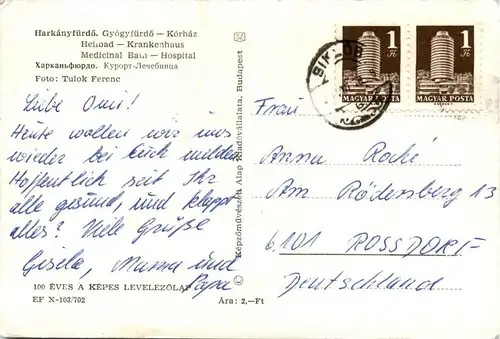 Harkányfürdő. Gyógyfürdő — Kórház
Heilbad — Krankenhaus
Medicinal Bath — Hospital
Харканьфюрдо. Курорт-Лечебница
Foto: Tulok Ferenc
Liebe Omi!
Heute wollen wir uns
wieder bei Euch melden.
Hoffentlich seit Ihr
alle gesund, und klappt
alles? Viele Grüße
Gisela, Mama und
Papa
100 ÉVES A KÉPES LEVELEZŐLAP
EF X-103/702
Ára: 2,-Ft
Képzőművészeti Alap Kiadóvállalata, Budapest
1 Ft
MAGYAR POSTA
1 Ft
MAGYAR POSTA
Frau
Anna Roché
Am Rödersberg 13
6101 ROSSDORF
Deutschland